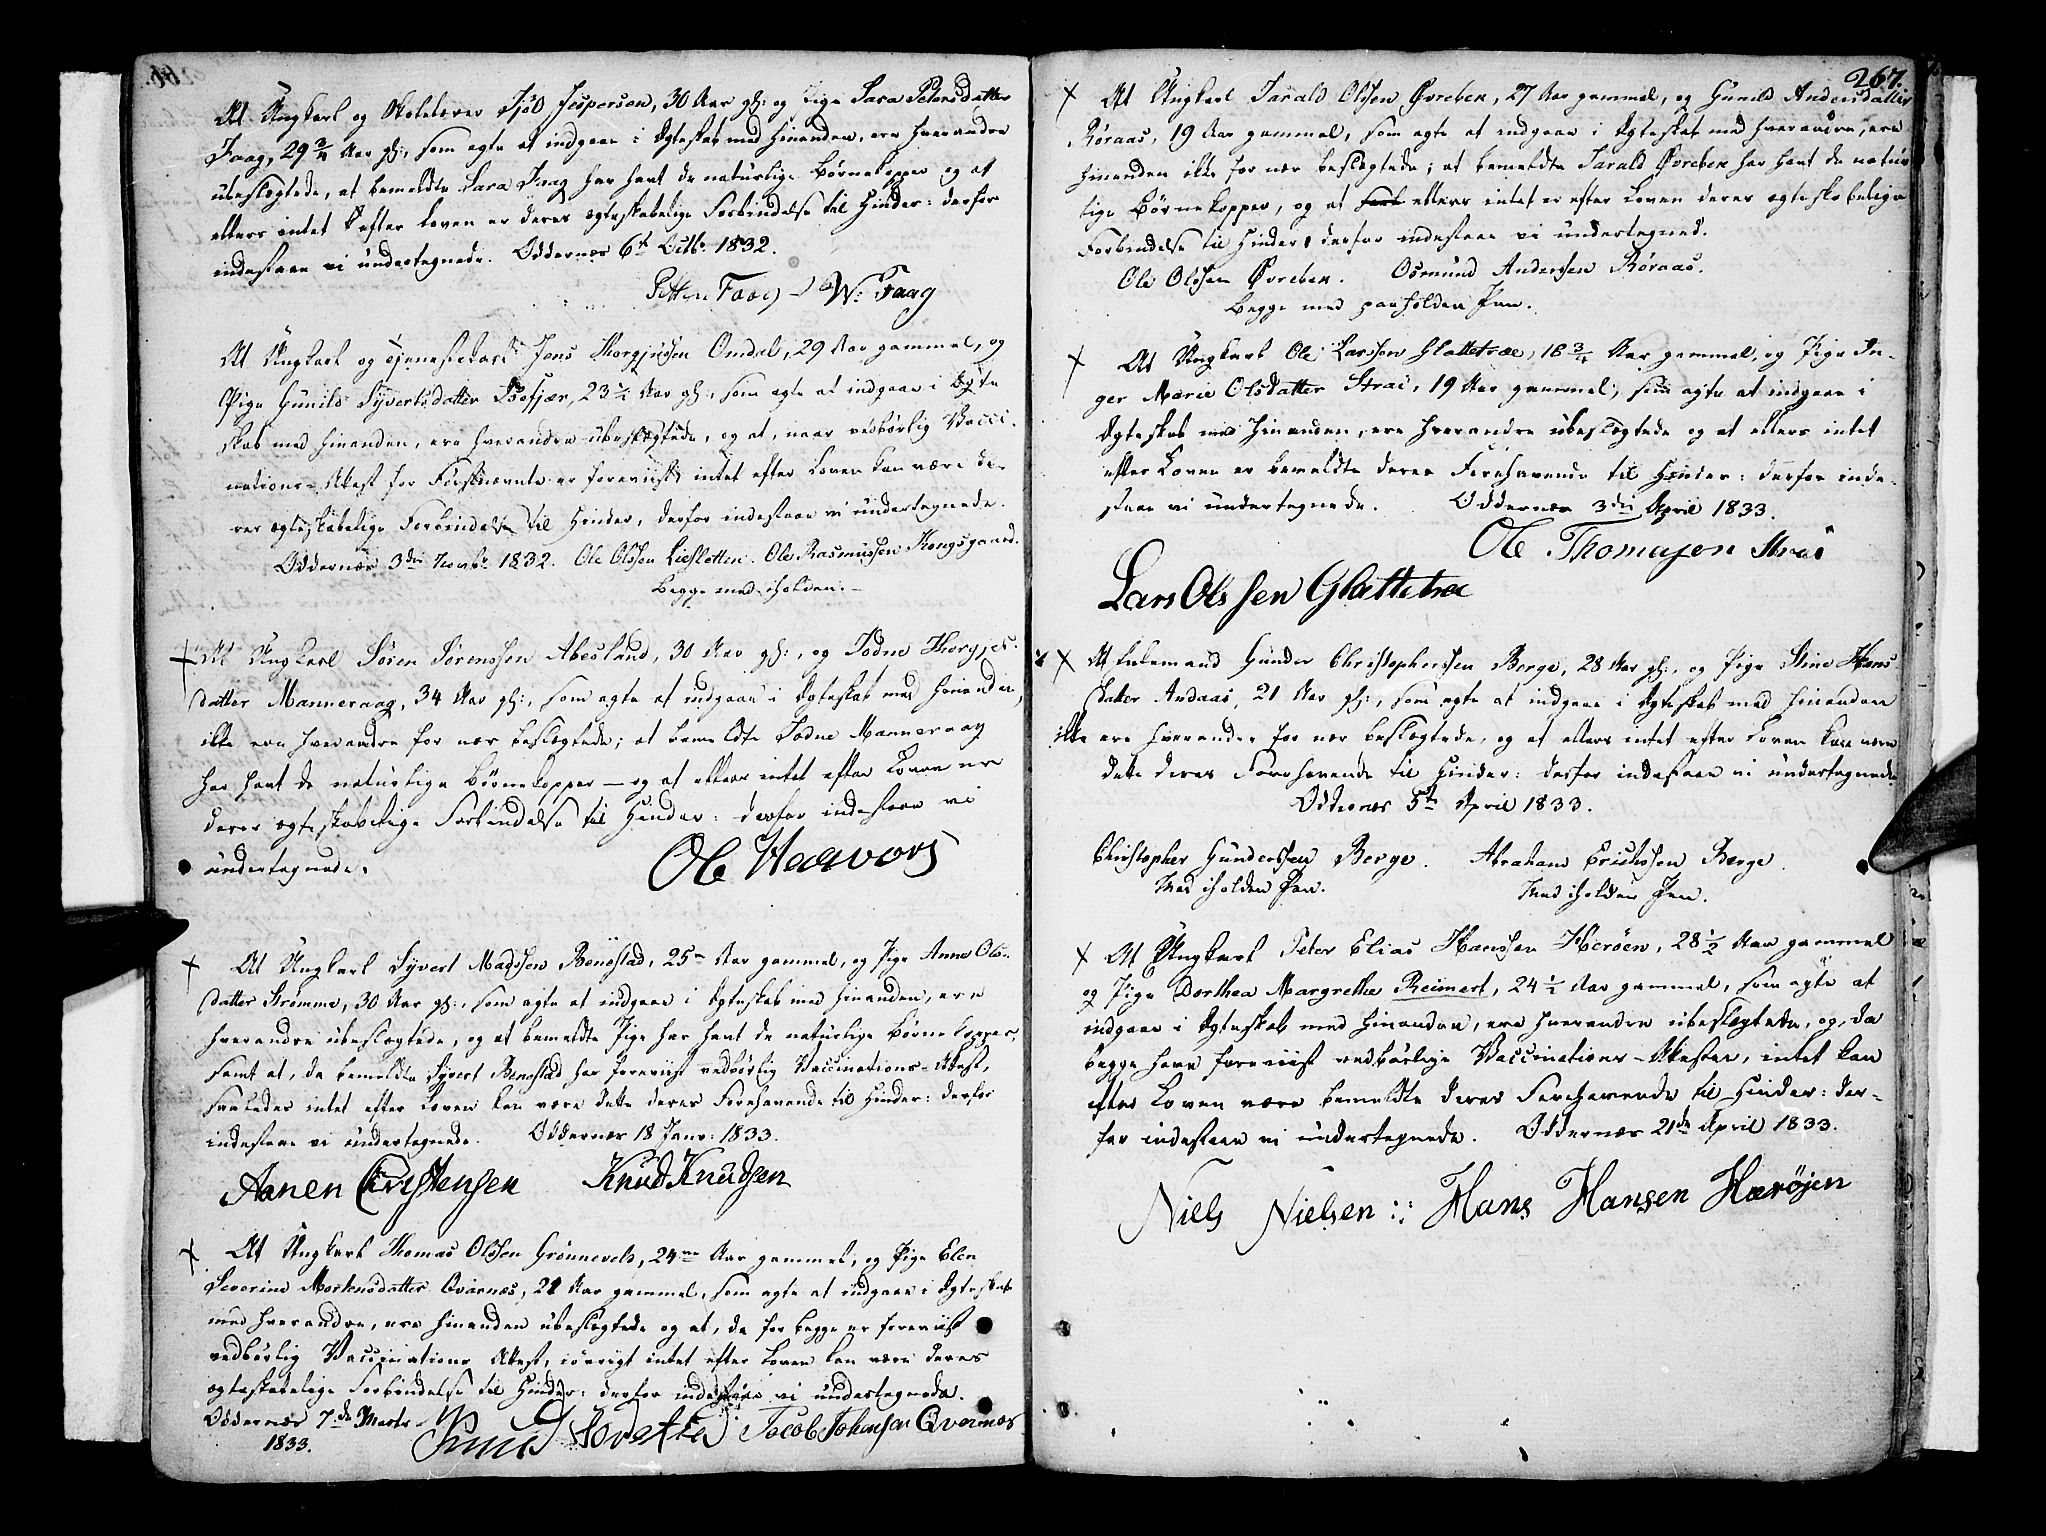 At Ungkarl og Skolelærer Ejöl Jespersen, 30 Aar gl: og Pige Sara Petersdatter
Faag, 29 3/4 Aar gl:, som agte at indgaae i Ægteskab med hinanden, ere hverandre
ubeslægtede, at bemeldte Sara Faag har havt de naturlige Børnekopper og at
ellers intet efter Loven er deres ægteskabelige Forbindelse til Hinder: derfor
indestaae vi undertegnede. Oddernæs 6t Octb: 1832.
Petter Faag - W: Faag
At Ungkarl og Tjenestekarl Jens Thorgjusen Omdal, 29 Aar gammel, og
Pige Gunild Syvertsdatter Boefjær, 23 1/2 Aar gl:, som agte at indgaae i Ægte
skab med hinanden, ere hverandre ubeslægtede, og at, naar vedbørlig Vacci-
nations-Attest for Førstnævnte er foreviist, intet efter Loven kan være de-
res ægteskabelige Forbindelse til Hinder, derfor indestaae vi undertegnede.
Oddernæs 3die Novbr: 1832. Ole Olssen Liesletten. Ole Rasmussen Kongsgaard.
Begge med iholden.-
At Ungkarl Søren Sørenssen Abesland, 30 Aar gl:, og Todne Thorgjes-
datter Manneraag, 34 Aar gl:, som agte at indgaae i Ægteskab med hinanden,
ikke ere hverandre for nær beslægtede; at bemeldte Todne Manneraag
har havt de naturlige Børnekopper - og at ellers intet efter Loven er
deres ægteskabelige Forbindelse til Hinder: derfor indestaae vi
undertegnede.
Ole Haavors
At Ungkarl Syvert Madssen Benestad, 25 Aar gammel, og Pige Anne Ols-
datter Strømme, 30 Aar gl:, som agte at indgaae i Ægteskab med hinanden, ere
hverandre ubeslægtede, og at bemeldte Pige har havt de naturlige Børnekopper,
samt at, da bemeldte Syvert Benestad har foreviist vedbørlig Vaccinations-Attest,
saaledes intet efter Loven kan være dette deres Forehavende til Hinder: derfor
indestaae vi undertegnede. Oddernæs 18 Janv: 1833.
Aanen Cristensen Knud Knudsen
At Ungkarl Thomas Olssen Grønnevold, 24 Aar gammel, og Pige Elen
Severine Mortensdatter Qvarnæs, 21 Aar gammel, som agte at indgaae i Ægteskab
med hverandre, ere hinanden ubeslægtede og at, da for begge er foreviist
vedbørlig Vaccinations Attest, iøvrigt intet efter Loven kan være deres
ægteskabelige Forbindelse til Hinder: derfor indestaae vi undertegnede.
Oddernæs 7de Marts
1833.
Jacob Johansen Qvernæs
267.
At Ungkarl Tarald Olssen Øvrebek, 27 Aar gammel, og Gunild Andersdatter
Røraas, 19 Aar gammel, som agte at indgaae i Ægteskab med hverandre, ere
hinanden ikke for nær beslægtede; at bemeldte Tarald Øvrebek har havt de natur
lige Børnekopper, og at ellers intet er efter Loven deres ægteskabelige
Forbindelse til Hinder; derfor indestaae vi undertegned.
Ole Olssen Øvrebek. Osmund Anderssen Røraas.
Begge med paaholden Pen.
At Ungkarl Ole Larssen Glattetræe, 18 3/4 Aar gammel, og Pige In-
ger Marie Olsdatter Strai, 19 Aar gammel, som agte at indgaae i
Ægteskab med hinanden, ere hverandre ubeslægtede og at ellers intet
efter Loven er bemeldte deres Forehavende til Hinder: derfor inde-
staae vi undertegnede. Oddernæs 3die April 1833.
Ole Thomasen Strai
Lars Olssen Glattetræ
At Enkemand Gunder Christophersen Berge, 28 Aar gl:, og Pige Stine Hans
datter Andaas, 21 Aar gl:, som agte at indgaae i Ægteskab med hinanden
ikke ere hverandre for nær beslægtede, og at ellers intet efter Loven kan være
dette deres Forehavende til Hinder: derfor indestaae vi undertegnede
Oddernæs 5te April 1833.
Christopher Gunderssen Berge. Abraham Erichssen Berge.
Med iholden Pen. Med iholden Pen.
At Ungkarl Peter Elias Hanssen Herøen, 28 1/2 Aar gammel
og Pige Dorthea Margrethe Reimert, 24 1/2 Aar gammel, som agte at
indgaae i Ægteskab med hinanden, ere hverandre ubeslægtede, og, da
begge have foreviist vedbørlige Vaccinations-Attester, intet kan
efter Loven være bemeldte deres Forehavende til Hinder: der-
for indestaae vi undertegnede. Oddernæs 21de April 1833.
Niels Nielsen :: Hans Hansen Herøjen